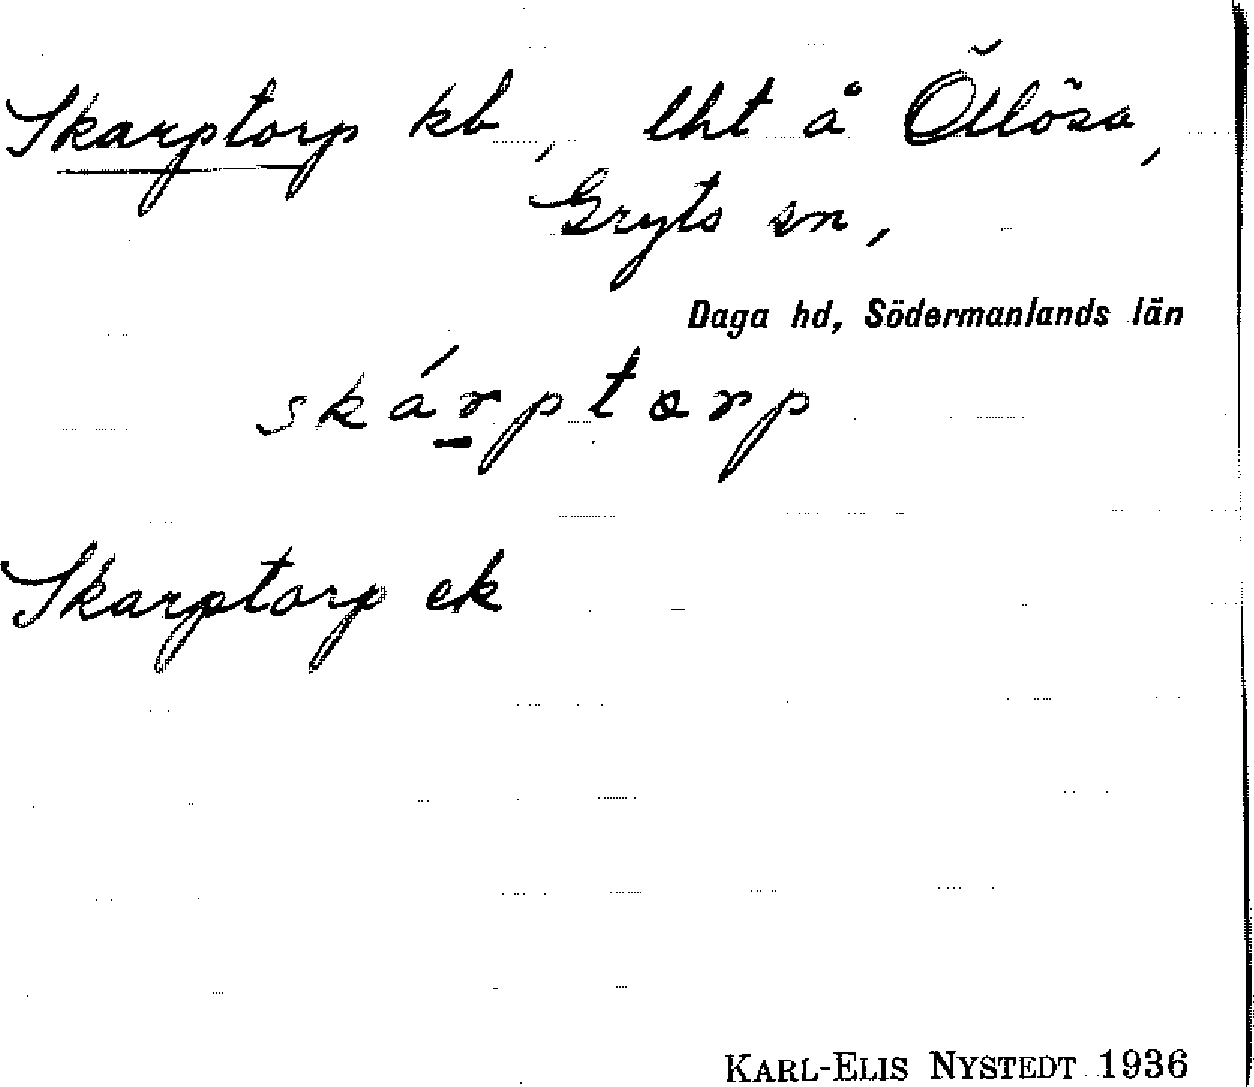 Skarptorp kb, lht å Öllösa,
Gryts sn,
Daga hd, Södermanlands län
skárptorp
Skarptorp ek
KARL-ELIS NYSTEDT 1936